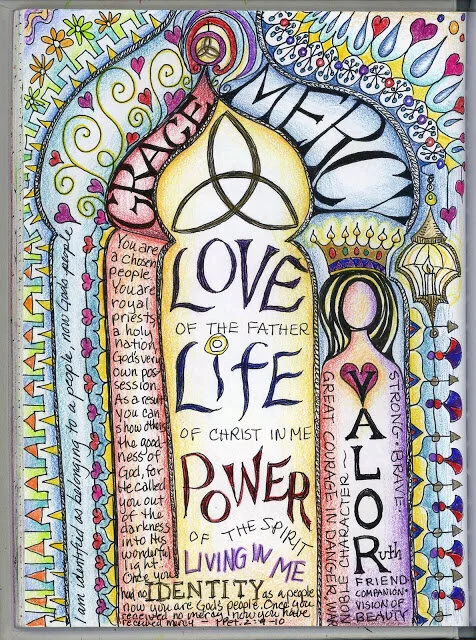 GRACE
MERCY
LOVE
OF THE FATHER
LiFE
OF CHRIST IN ME
POWER
OF THE SPIRIT
LIVING IN ME
You are
a chosen
people.
You are
royal
priests
a holy
nation,
God's very
own pos-
session.
As a result
you can
show others
the good-
ness of
God, for
He called
you out
of the
darkness
into His
wonderful
light.
Once you
had no IDENTITY as a people
now you are God's people. Once you
received no mercy, now you have
received mercy ~ 1 Pet. 2:9-10
I am identified as belonging to a people, now God's people
VALOR
STRONG + BRAVE
GREAT COURAGE IN DANGER, WAR
NOBLE CHARACTER ~
Ruth
FRIEND
COMPANION +
VISION OF
BEAUTY